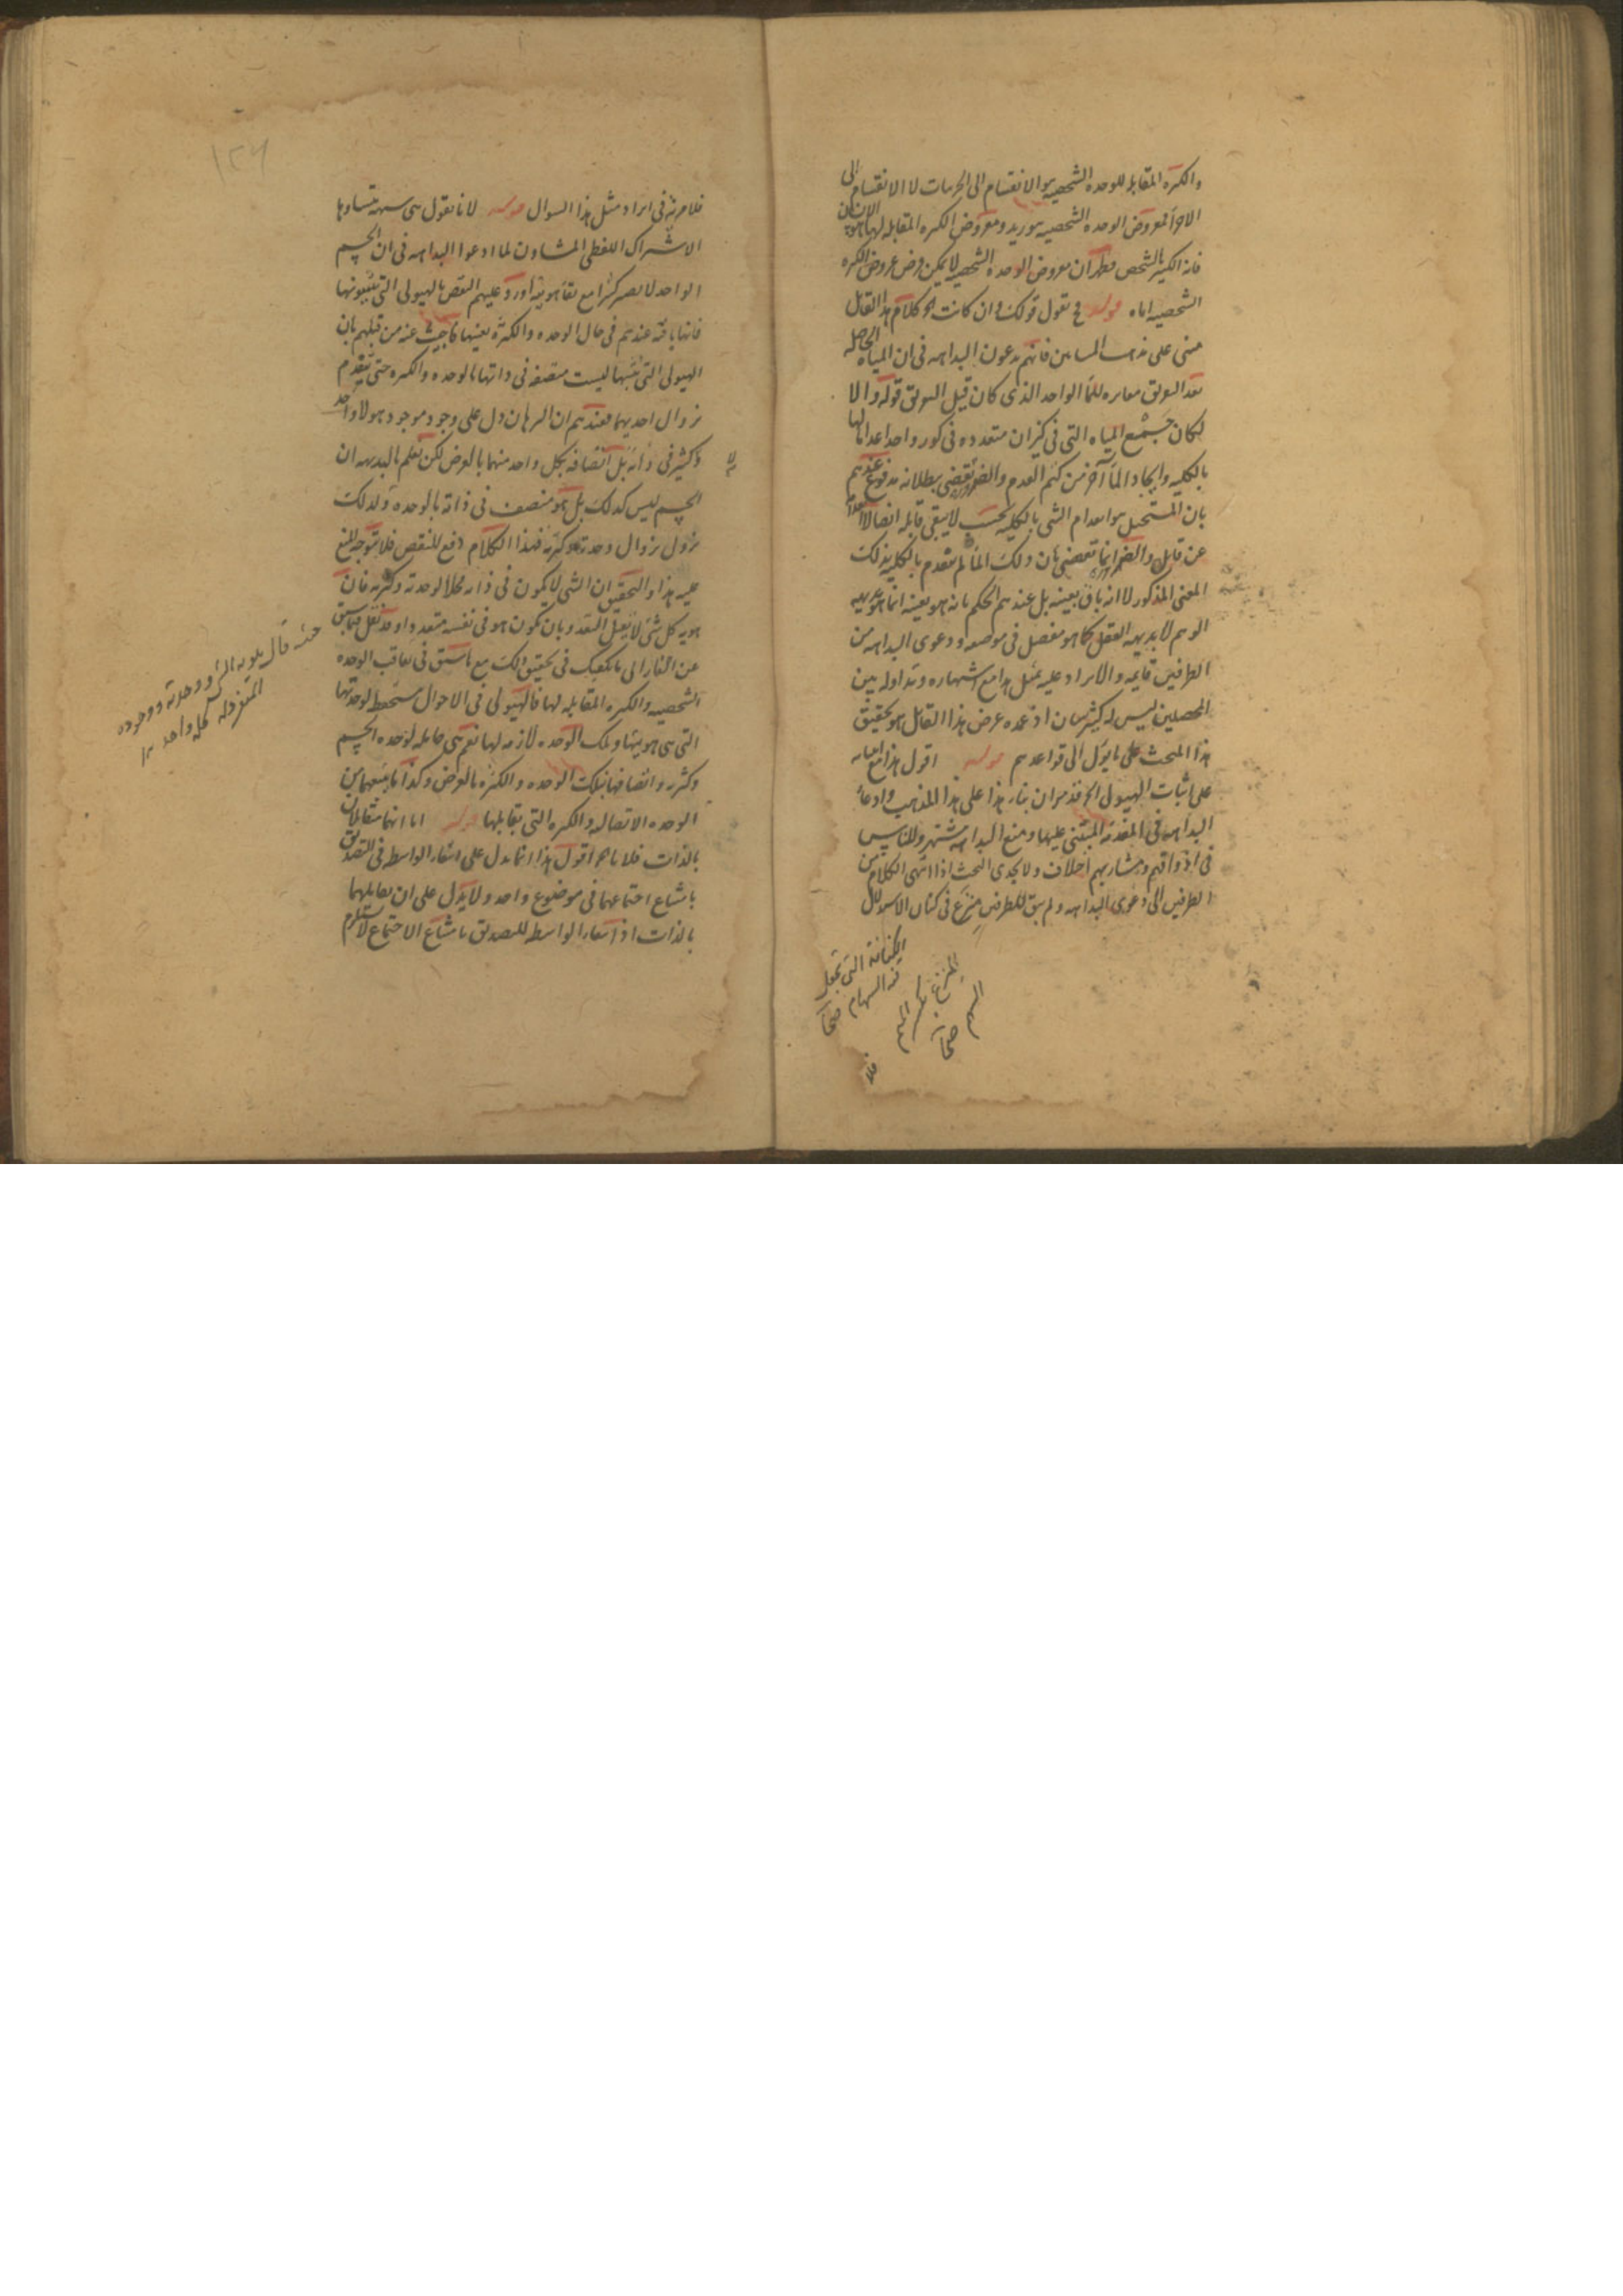 والكثره المقابله للوحده الشخصيه هو الانقسام الى الجزئيات لا الانقسام الى
الاجزا فمعروض الوحده الشخصيه هو زيد ومعروض الكثره المقابله لها هو الانسان
فانه الكثير بالشخص فظهر ان معروض الوحده الشخصيه لا يمكن فرض عروض الكثره
الشخصيه اياه قوله فح نقول قولك وان كانت الخ كلام هذا القائل
مبنى على مذهب المشايين فانهم يدعون البداهه فى ان المياه الحاصله
بعد التفريق مغايره للماء الواحد الذى كان قبل التفريق قوله والا
لكان جمع المياه التى فى كيزان متعدده فى كوز واحد اعداما لها
بالكليه وايجاد المآ آخر من كتم العدم والضرورة تقضى ببطلانه مدفوع عندهم
بان المستحيل هو انعدام الشى بالكليه بحيث لا يبقى قابله اتصالا
عن قابل والضروره انما تقضى بان ذلك المآ لم ينعدم بالكليه بذلك
المعنى المذكور لا انه باق بعينه بل عندهم الحكم بانه هو بعينه انما هو بديهه
الوهم لا بديهه العقل كما هو مفصل فى موضعه ودعوى البداهه من
الطرفين قايمه والايراد عليه بمثل هذا مع اشتهاره وتداوله بين
المحصلين ليس له كثير شان اذ عمده غرض هذا القائل هو تحقيق
هذا المبحث على ما يؤل الى قواعدهم قوله اقول هذا مع ابتنايه
على اثبات الهيولى الخ قد مر ان بناء هذا على هذا المذهب وادعاء
البداهه فى المقدمة المبتنى عليها ومنع البداهه مشتهر وللناس
فى اذواقهم ومشاربهم اختلاف ولا يجدى البحث اذا انتهى الكلام من
الطرفين الى دعوى البداهه ولم يبق للطرفين منزع فى كنان الاستدلال
الكنانة التى تجعل
فيه السهام صحاح
المنزع بكسر الميم
السهم صحاح
فلا
فلا مزية فى ايراد مثل هذا السوال قوله لانا نقول هى شبهة تساوها
الاشتراك اللفظى المشاؤن لما ادعوا البداهه فى ان الجسم
الواحد لا يصير كثيرا مع بقآ هويته اورد عليهم النقض بالهيولى التى يثبتونها
فانها باقية عندهم فى حال الوحده والكثرة بعينها فاجيب عنه من قبلهم بان
الهيولى التى نثبتها ليست متصفه فى ذاتها بالوحده والكثره حتى ينعدم
بزوال احديهما فعندهم ان البرهان دل على وجود موجود هو لا واحد
ولا كثير فى ذاته بل اتصافه بكل واحد منهما بالعرض لكن نعلم بالبديهه ان
الجسم ليس كذلك بل هو متصف فى ذاته بالوحده ولذلك
يزول بزوال وحدته وكثرته فهذا الكلام دفع للنقض فلا يتوجه المنع
عليه هذا والتحقيق ان الشى لا يكون فى ذاته محلا لوحدته وكثرته فان
هويه كل شى لا يقبل التعدد بان يكون هو فى نفسه متعددا وقد نقل فيما سبق
عن الفارابى ما يكفيك فى تحقيق ذلك مع ما سبق فى تعاقب الوحده
الشخصيه والكثره المقابله لها فالهيولى فى الاحوال مستحفظ لوحدتها
التى هى هويتها وتلك الوحده لازمه لها نعم هى حامله لوحده الجسم
وكثرته واتصافها بتلك الوحده والكثره بالعرض وكذا ما يتبعهما من
الوحده الاتصاليه والكثره التى يقابلها قوله اما انهما متقابلان
بالذات فلانا الخ اقول هذا انما يدل على انتفاء الواسطه فى التصديق
بامتناع اجتماعهما فى موضوع واحد ولا يدل على ان تقابلهما
بالذات اذ انتفاء الواسطه للتصديق بامتناع الاجتماع لا يستلزم
حيث قال هويه الشى ووحدته ووجوده
المتفرد له كله واحد